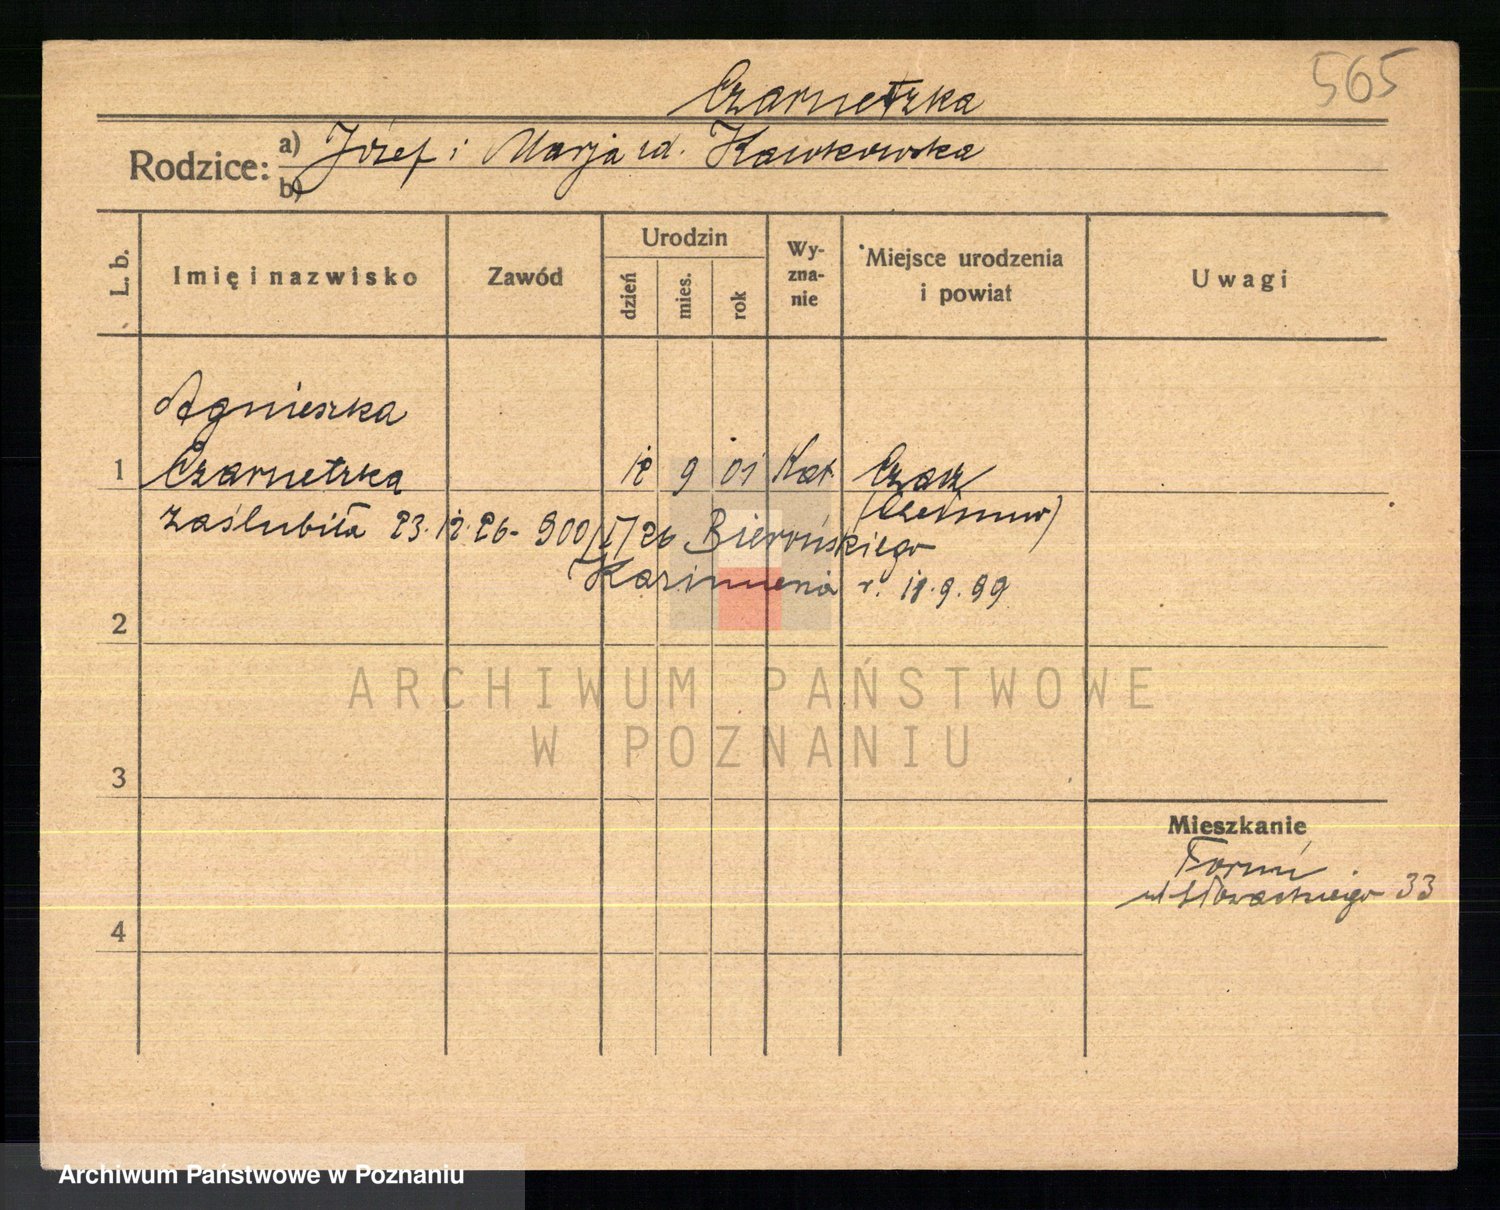 565
Czarnetzka
Rodzice: a) Józef i Marja zd. Kawkowska
b)
L. b. Imię i nazwisko Zawód Urodzin dzień mies. rok Wy-zna-nie Miejsce urodzenia i powiat Uwagi
Agnieszka
1 Czarnetzka 12 9 01 Kat. Czacz
zaślubiła 23.12.26 - 900/I/26 Bierońskiego
Kazimierza r. 11.9.99
2
ARCHIWUM PAŃSTWOWE
W POZNANIU
3
Mieszkanie
Toruń
ul Słowackiego 33
4
Archiwum Państwowe w Poznaniu